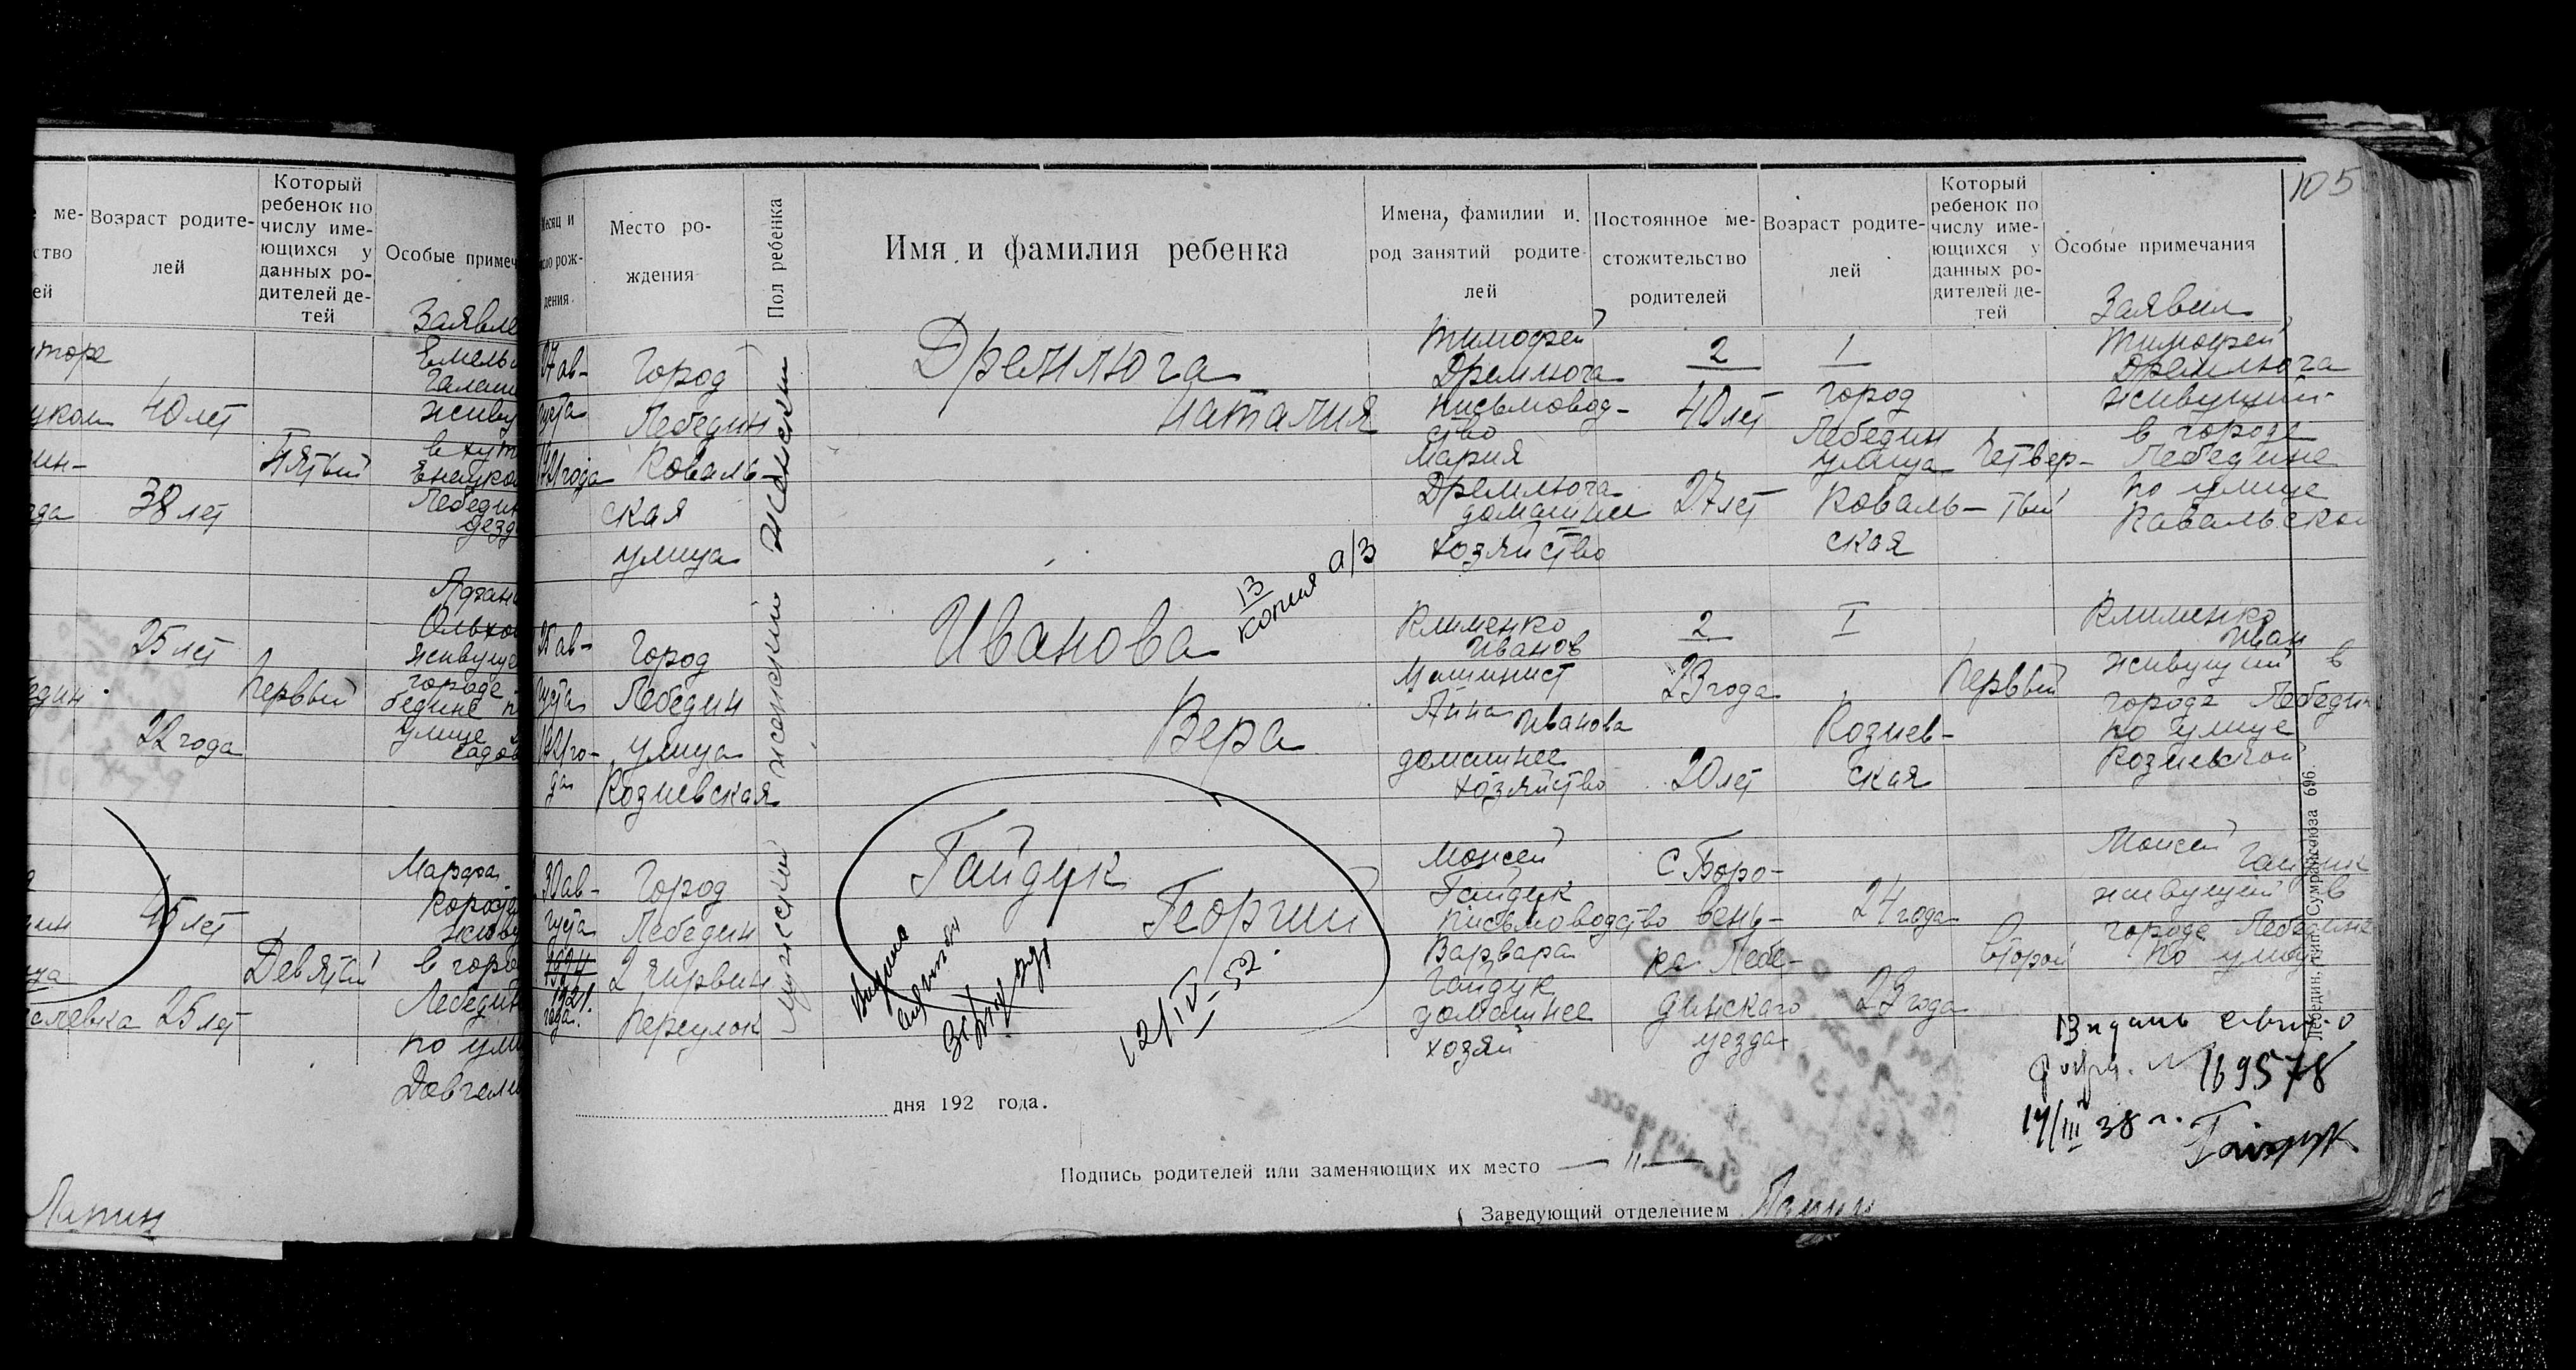 105
ме-
ство
ей
Возраст родите-
лей
Который
ребенок по
числу име-
ющихся у
данных ро-
дителей де-
тей
Особые примеч
40 лет
38 лет
Пятый
Емель
живу
Лебедин
25 лет
22 года
Первый
живуще
городе
бедине
улице
садов
45 лет
25 лет
Девятый
Марфа
в горо
Лебедин
по ули
Лапин
Месяц и
число рож-
дения
Место ро-
ждения
Пол ребенка
Имя и фамилия ребенка
Имена, фамилии и
род занятий родите-
лей
Постоянное ме-
стожительство
родителей
Возраст родите-
лей
Который
ребенок по
числу име-
ющихся у
данных ро-
дителей де-
тей
Особые примечания
Заявил
27 ав-
густа
1921 года
Город
Лебедин
Коваль-
ская
улица
Женский
Дремлюга
Наталия
Тимофей
Дремлюга
письмовод-
ство
Мария
Дремлюга
домашнее
хозяйство
2
40 лет
27 лет
1
город
Лебедин
улица
Коваль-
ская
Четвер-
тый
Тимофей
Дремлюга
живущий
в городе
Лебедине
по улице
Ковальской
25 ав-
густа
1921 го-
да
Город
Лебедин
улица
Козиевская
женский
Иванова
Вера
13
копия а/з
Клименко
Иванов
Машинист
Анна Иванова
домашнее
хозяйство
2
23 года
20 лет
I
Козиев-
ская
Первый
Клименко
Иван
живущий в
городе Лебедин
по улице
Козиевской
30 ав-
густа
1921
года.
Город
Лебедин
2
Переулок
мужский
Гайдук
Георгий
12/IV-52.
Моисей
Гайдук
письмоводство
Варвара
Гайдук
домашнее
хозяй
С Боро-
вень-
ка Лебе-
динского
уезда
24 года
23 года
второй
Моисей
Гайдук
живущий в
городе Лебедине
по улиц
169578
14/III 38 г.
Гайдук
дня 192 года.
Подпись родителей или заменяющих их место — " —
Заведующий отделением Лапин
Лебедин, тип. Сумрайсоюза 696.